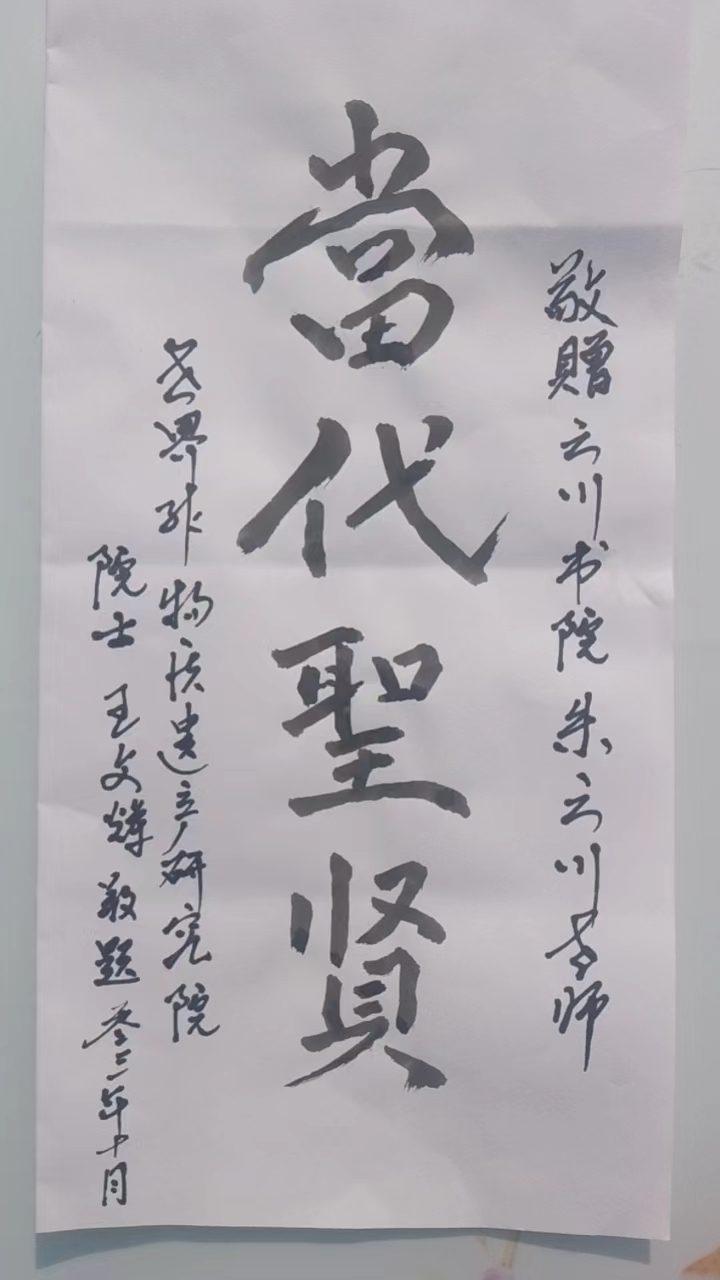 敬赠云川书院朱云川老师
當代聖贤
世界非物质遗产研究院
院士王文辉敬题
年十月